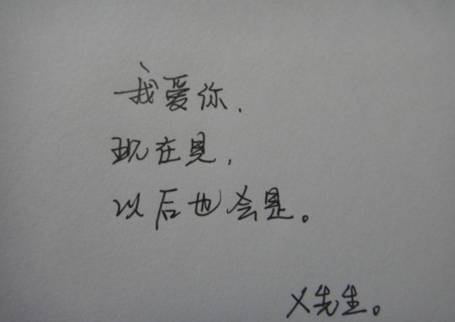 我爱你，
现在是，
以后也会是。
X先生。